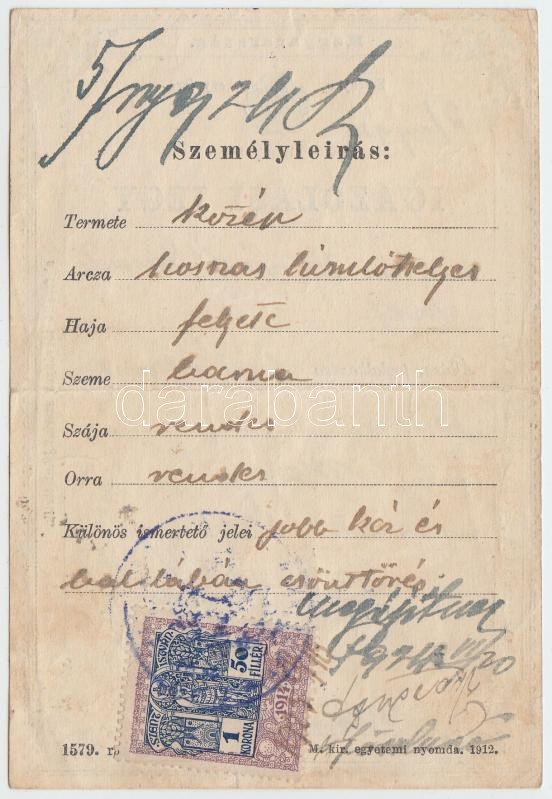 Személyleirás:
Termete közép
Arcza hosszas himlőhelyes
Haja fekete
Szeme barna
Szája rendes
Orra rendes
Különös ismertető jelei jobb kéz és
bal lábán csonttörés
SZENT ISTVÁN
50
FILLÉR
1
KORONA
1914
darabanth
1579. r.
M. kir. egyetemi nyomda. 1912.